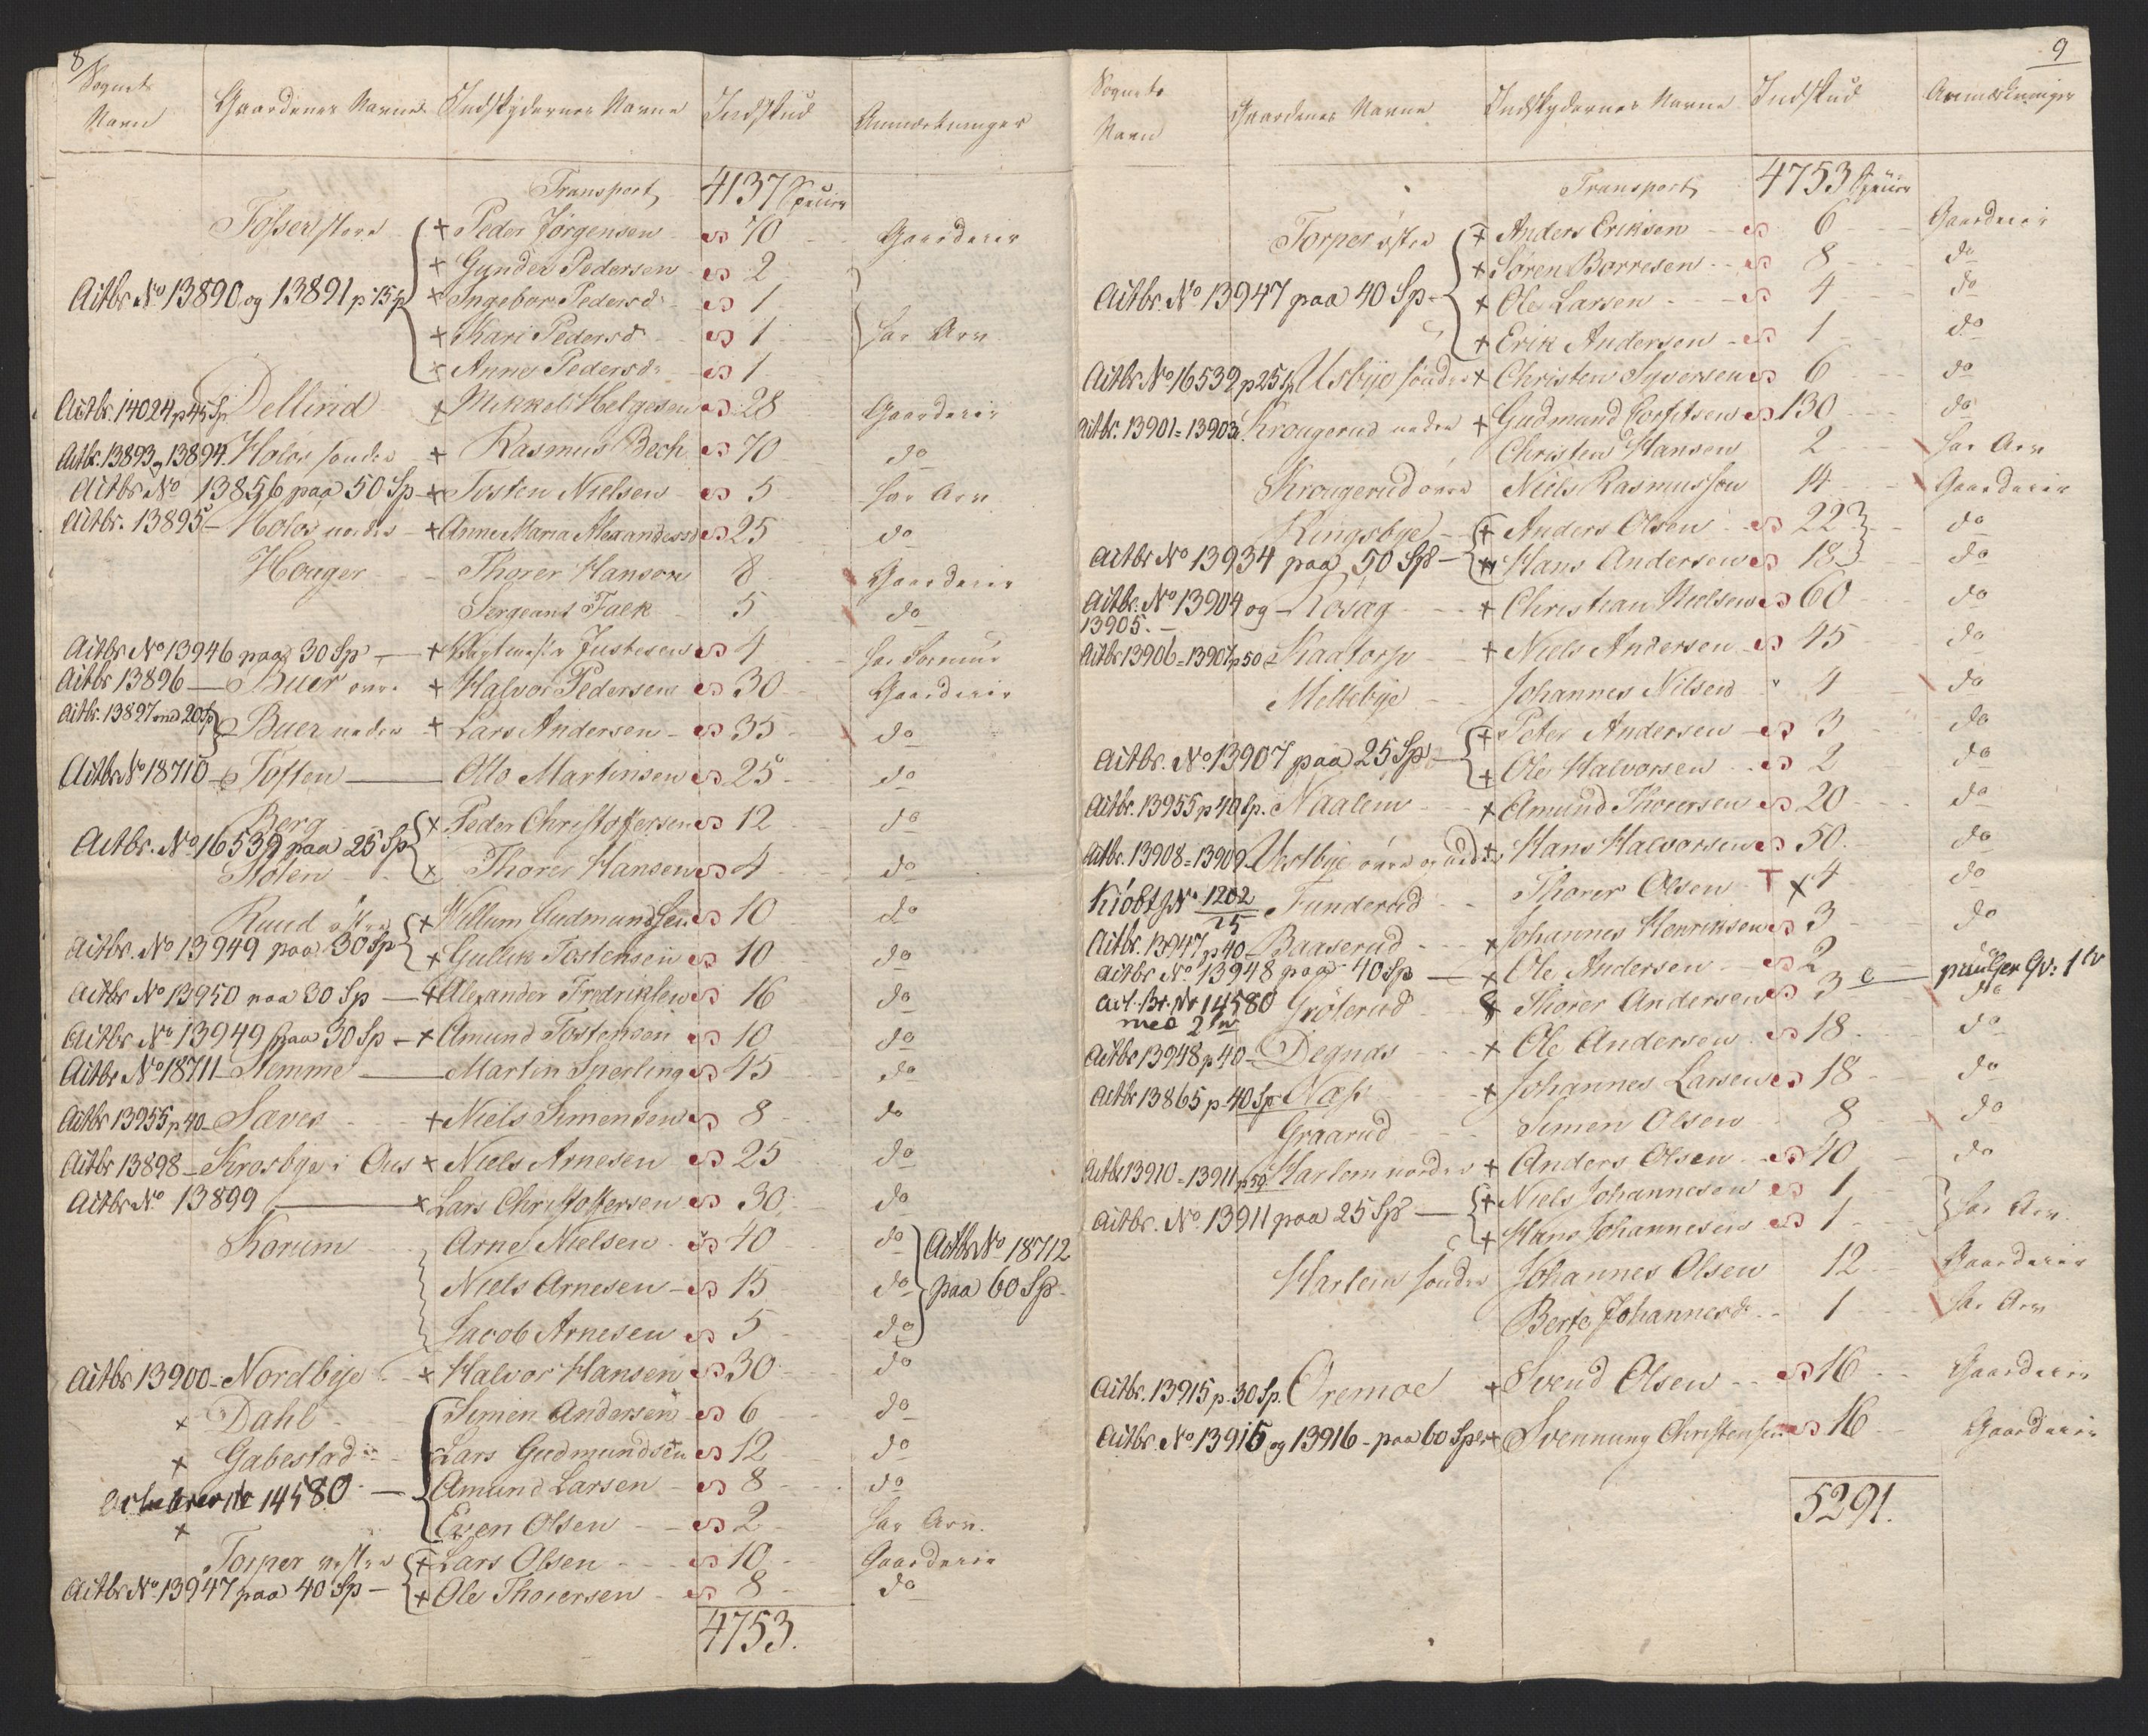 8
Sognets Navn Gaardenes Navne Indskydernes Navne Indskud Anmærkninger
Transport 4137 Specier
Fosser store + Peder Jørgensen 70 Gaardeier
+ Gunder Pedersen 2
Actbr No 13890 og 13891 p 15 sp + Ingebor Pedersd 1
+ Kari Pedersd 1 har Arv
+ Anne Pedersd 1
Actbr. 14024 p 45 Sp Dellerud + Mikkel Helgesen 28 Gaardeier
Actbr. 13893 og 13894 Holøs søndre + Rasmus Bech 70 do
Actbr No 13856 paa 50 Sp + Tosten Nielsen 5 har Arv
Actbr. 13895 Holøs nordre + Anne Maria Alexandersd 25 do
Houger Thorer Hansen 8 Gaardeier
Sergeant Falck 5 do
Actbr No 13946 paa 30 Sp + Justesen 4
Actbr 13896 Buer øvre + Halvor Pedersen 30 Gaardeier
Actbr. 13897 med 20 Sp Buer nedre + Lars Andersen 35 do
Actbr No 18710 Toften Otto Martinsen 25 do
Berg + Peder Christoffersen 12 do
Actbr. No 16539 paa 25 Sp
Stolen + Thorer Hansen 4 do
Ruud østre + Willum Gudmundsen 10 do
Actbr. No 13949 paa 30 Sp + Gullik Tostensen 10 do
Actbr No 13950 paa 30 Sp + Alexander Fredriksen 16 do
Actbr No 13949 paa 30 Sp + Amund Tostensen 10 do
Actbr No 18711 Hemme Martin Sperling 45 do
Actbr 13955 p 40 Sæves + Niels Simensen 8 do
Actbr 13898 Krosbye i Ous + Niels Arnesen 25 do
Actbr No 13899 + Lars Christoffersen 30 do
Korum Arne Nielsen 40 do Actbr No 18712
Niels Arnesen 15 do paa 60 Sp
Jacob Arnesen 5 do
Actbr 13900 Nordbye + Halvor Hansen 30 do
+ Dahl Simen Andersen 6 do
+ Gabestad Lars Gudmundsen 12 do
No 14580 Amund Larsen 8 do
+ Even Olsen 2 har Arv.
Torper vestre + Lars Olsen 10 Gaardeier
Actbr No 13947 paa 40 Sp + Ole Thorersen 8 do
4753.
9
Sognets Navn Gaardenes Navne Indskydernes Navne Indskud Anmærkninger
Transport 4753 Specier
Torper østre + Anders Eriksen 6 Gaardeier
+ Søren Borresen 8 do
Actbr. No 13947 paa 40 Sp + Ole Larsen 4 do
+ Erik Andersen 1 do
Actbr No 16539 p 25 Sp Usbye søndre + Christen Syversen 6 do
Actbr. 13901 = 13903 Krougerud nedre + Gudmund Corfitsen 130 do
Christen Hansen 2 har Arv
Krougerud øvre Niels Rasmussen 14 Gaardeier
Ringsbye + Anders Olsen 22 do
Actbr No 13934 paa 50 Sp + Hans Andersen 18 do
Actbr. No 13904 og 13905. Rosæg + Christian Nielsen 60 do
Actbr 13906 = 13907 p 50 Kaatorp + Niels Andersen 45 do
Mellebye Johannes Nilsen 4 do
+ Peter Andersen 3 do
Actbr. No 13907 paa 25 Sp + Ole Halvorsen 2 do
Actbr. 13955 p 40 Sp. Naalem + Amund Thorersen 20 do
Actbr. 13908 = 13909 Uestbye øvre og nedre + Hans Halvorsen 50 do
Kiøbt g No 1202/25 Funderud Thorer Olsen T x 4 do
Actbr. 13947 p 40 Baaserud + Johannes Henriksen 3 do
Actbr No 13948 paa 40 Sp + Ole Andersen 2 do
Act. Br. Nr 14580 med 2 Grøterud Thorer Andersen 3 do
Actbr 13948 p 40 Degnæs + Ole Andersen 18 do
Actbr 13865 p 40 Sp Næs + Johannes Larsen 18 do
Graarud Simen Olsen 8 do
Actbr 13910 = 13911 p 50 Harlem nordre + Anders Olsen 40 do
+ Niels Johannesen 1
Actbr. No. 13911 paa 25 Sp + Hans Johannesen 1 har Arv
Harlem søndre Johannes Olsen 12 Gaardeier
Berte Johannesd 1 har Arv
Actbr. 13915 p 30 Sp. Oremoe + Svend Olsen 16 Gaardeier
Actbr. No 13915 og 13916 paa 60 Sper + Svennung Christensen 16 Gaardeier
5291.